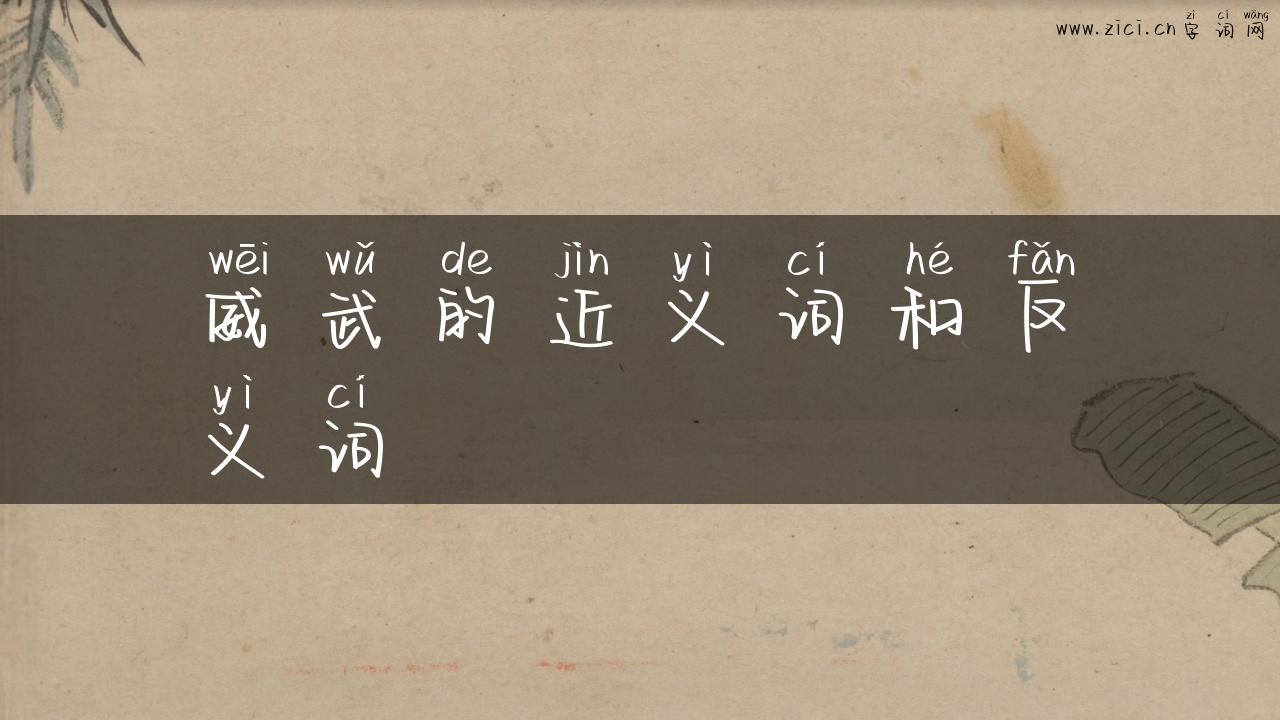 zì cí wǎng
www.zici.cn 字 词 网
wēi wǔ de jìn yì cí hé fǎn
威 武 的 近 义 词 和 反
yì cí
义 词